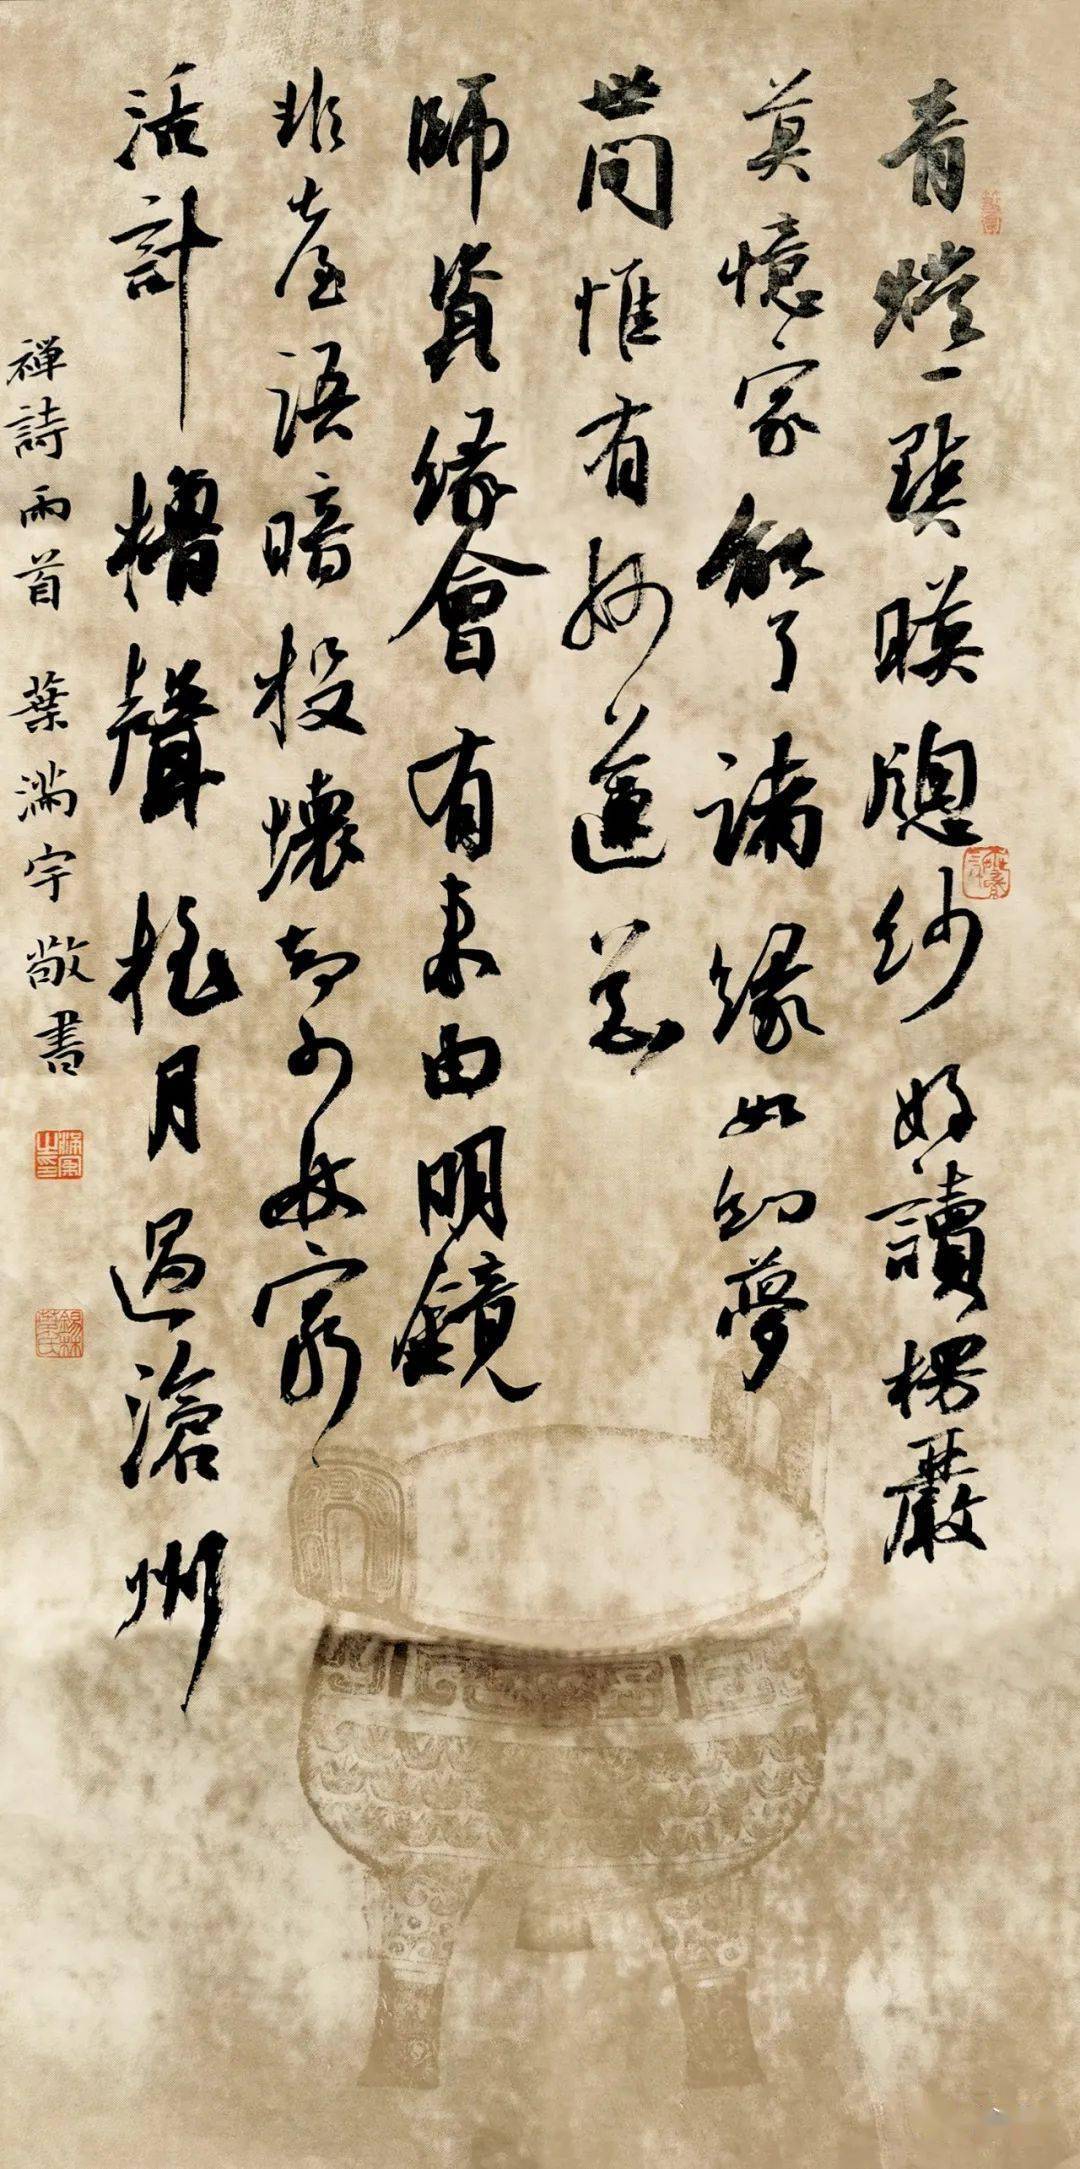 青燈一點暎牕紗好讀楞嚴
莫憶家能了諸緣如幻夢
世間惟有妙蓮花
師資緣會有來由明鏡
非臺語暗投壞却少林窮
活計櫓聲搖月過滄州
禪詩兩首 葉滿宇敬書